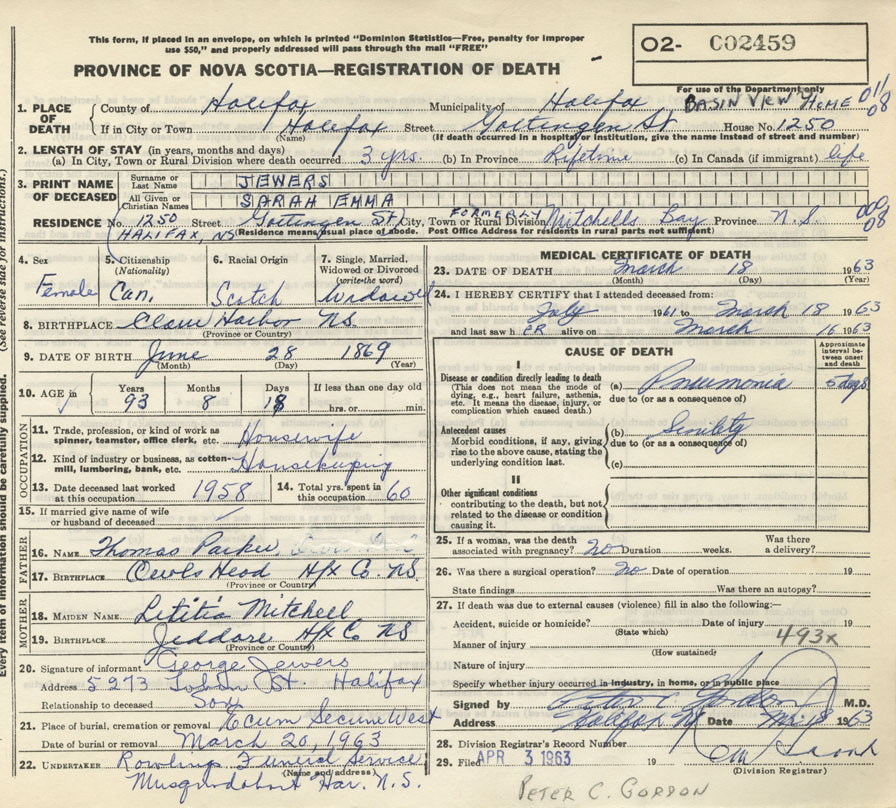 This form, if placed in an envelope, on which is printed "Dominion Statistics—Free, penalty for improper
use $50," and properly addressed will pass through the mail "FREE"
O2- C02459
PROVINCE OF NOVA SCOTIA—REGISTRATION OF DEATH
For use of the Department only
BASIN VIEW HOME
1. PLACE OF DEATH
County of Halifax Municipality of Halifax
If in City or Town Halifax Street Gottingen St House No. 1250
(Name) (If death occurred in a hospital or institution, give the name instead of street and number)
2. LENGTH OF STAY (in years, months and days)
(a) In City, Town or Rural Division where death occurred 3 yrs. (b) In Province Lifetime (c) In Canada (if immigrant) life
3. PRINT NAME OF DECEASED
Surname or Last Name JEWERS
All Given or Christian Names SARAH EMMA
RESIDENCE No. 1250 Street Gottingen St City, Town or Rural Division FORMERLY Mitchells Bay Province N.S.
HALIFAX, NS (Residence means usual place of abode. Post Office Address for residents in rural parts not sufficient)
4. Sex Female
5. Citizenship (Nationality) Can.
6. Racial Origin Scotch
7. Single, Married, Widowed or Divorced (write the word) Widowed
8. BIRTHPLACE Clam Harbor N.S.
(Province or Country)
9. DATE OF BIRTH June 28 1869
(Month) (Day) (Year)
10. AGE in Years 93 Months 8 Days 18 If less than one day old hrs. or min.
OCCUPATION
11. Trade, profession, or kind of work as spinner, teamster, office clerk, etc. Housewife
12. Kind of industry or business, as cotton-mill, lumbering, bank, etc. Housekeeping
13. Date deceased last worked at this occupation 1958
14. Total yrs. spent in this occupation 60
15. If married give name of wife or husband of deceased
FATHER
16. NAME Thomas Parker
17. BIRTHPLACE Owls Head Hfx Co. NS.
(Province or Country)
MOTHER
18. MAIDEN NAME Letitia Mitchell
19. BIRTHPLACE Jeddore Hfx Co NS
(Province or Country)
20. Signature of informant George Jewers
Address 5273 St. Halifax
Relationship to deceased Son
21. Place of burial, cremation or removal Ecum Secum West
Date of burial or removal March 20, 1963
22. UNDERTAKER Rowlings Funeral Service
(Name and address)
Musquodoboit Har. N.S.
MEDICAL CERTIFICATE OF DEATH
23. DATE OF DEATH March 18 1963
(Month) (Day) (Year)
24. I HEREBY CERTIFY that I attended deceased from:
July 1961 to March 18 1963
and last saw h ER alive on March 16 1963
CAUSE OF DEATH
Approximate interval between onset and death
I
Disease or condition directly leading to death (a) Pneumonia 5 days
(This does not mean the mode of dying, e.g., heart failure, asthenia, etc. It means the disease, injury, or complication which caused death.)
due to (or as a consequence of)
Antecedent causes (b) Senility
Morbid conditions, if any, giving rise to the above cause, stating the underlying condition last.
due to (or as a consequence of)
(c)
II
Other significant conditions
contributing to the death, but not related to the disease or condition causing it.
25. If a woman, was the death associated with pregnancy? no Duration weeks. Was there a delivery?
26. Was there a surgical operation? no Date of operation 19
State findings Was there an autopsy?
27. If death was due to external causes (violence) fill in also the following:—
Accident, suicide or homicide? Date of injury 19
(State which)
Manner of injury 493x
(How sustained)
Nature of injury
Specify whether injury occurred in industry, in home, or in public place
Signed by Peter C Gordon M.D.
Address Halifax NS Date Mar 18 1963
28. Division Registrar's Record Number
29. Filed APR 3 1963 19
(Division Registrar)
PETER C. GORDON
(See reverse side for instructions.)
Every item of information should be carefully supplied.